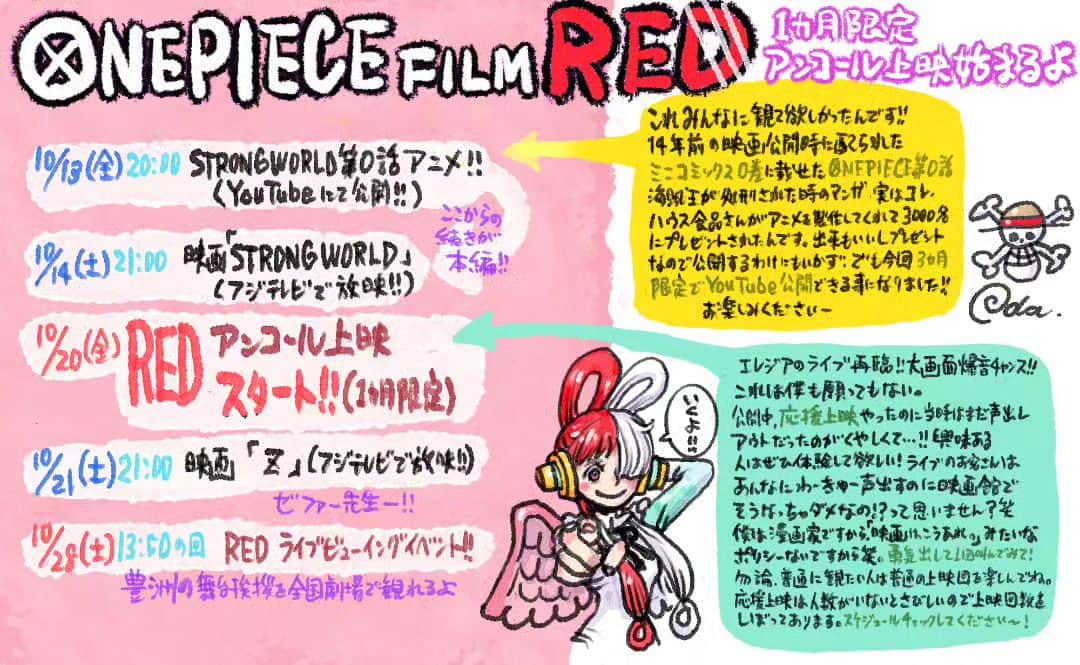 ONE PIECE FILM RED
1カ月限定
アンコール上映始まるよ
10/13(金)20:00 STRONG WORLD 第0話アニメ!!
(YouTubeにて公開!!)
ここからの
続きが
本編!!
10/14(土)21:00 映画「STRONG WORLD」
(フジテレビで放映!!)
10/20(金) RED アンコール上映
スタート!!(1カ月限定)
10/21(土)21:00 映画「Z」(フジテレビで放映!!)
ゼファー先生ー!!
10/28(土)13:50の回 RED ライブビューイングイベント!!
豊洲の舞台挨拶を全国劇場で観れるよ
これみんなに観て欲しかったんです!!
14年前の映画公開時に配られた
ミニコミックス0巻に載せたONE PIECE第0話
海賊王が処刑された時のマンガ 実はコレ
ハウス食品さんがアニメを製作してくれて3000名
にプレゼントされたんです。出来もいいしプレゼント
なので公開するわけにもいかず…でも今回3カ月
限定でYouTube公開できる事になりました!!
お楽しみくださいー
Oda.
いくよ!!
エレジアのライブ再臨!!大画面爆音チャンス!!
これは僕も願ってもない。
公開中、応援上映やったのに当時はまだ声出し
アウトだったのがくやしくて…!!興味ある
人はぜひ体験して欲しい!ライブのお客さんは
あんなにわーきゃー声出すのに映画館で
そうなっちゃダメなの!?って思いません?笑
僕は漫画家ですから「映画はこうあれ。」みたいな
ポリシーないですから笑。勇気出して1回叫んでみて!
勿論、普通に観たい人は普通の上映回を楽しんでね。
応援上映は人数がいないとさびしいので上映回数を
しぼってあります。スケジュールチェックしてください〜!